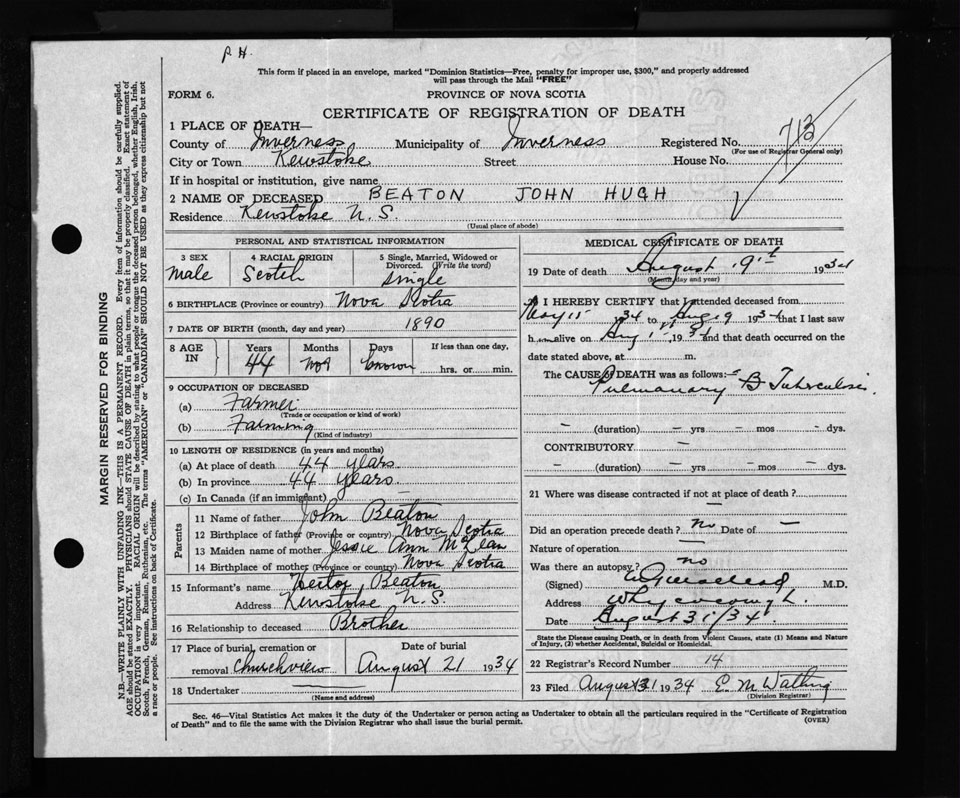 P. H.
This form if placed in an envelope, marked "Dominion Statistics—Free, penalty for improper use, $300," and properly addressed
will pass through the Mail "FREE"
FORM 6.
PROVINCE OF NOVA SCOTIA
CERTIFICATE OF REGISTRATION OF DEATH
1 PLACE OF DEATH—
County of Inverness Municipality of Inverness Registered No. 713
(For use of Registrar General only)
City or Town Kewstoke Street House No.
If in hospital or institution, give name
2 NAME OF DECEASED BEATON JOHN HUGH
Residence Kewstoke N. S.
(Usual place of abode)
PERSONAL AND STATISTICAL INFORMATION
3 SEX 4 RACIAL ORIGIN 5 Single, Married, Widowed or Divorced. (Write the word)
Male Scotch Single
6 BIRTHPLACE (Province or country) Nova Scotia
7 DATE OF BIRTH (month, day and year) 1890
8 AGE IN Years Months Days If less than one day,
44 not known hrs. or min.
9 OCCUPATION OF DECEASED
(a) Farmer
(Trade or occupation or kind of work)
(b) Farming
(Kind of industry)
10 LENGTH OF RESIDENCE (in years and months)
(a) At place of death 44 years
(b) In province 44 years
(c) In Canada (if an immigrant) —
Parents
11 Name of father John Beaton
12 Birthplace of father (Province or country) Nova Scotia
13 Maiden name of mother Jessie Ann McLean
14 Birthplace of mother (Province or country) Nova Scotia
15 Informant's name Hector Beaton
Address Kewstoke N. S.
16 Relationship to deceased Brother
17 Place of burial, cremation or removal Churchview
Date of burial
August 21 1934
18 Undertaker —
(Name and address)
MEDICAL CERTIFICATE OF DEATH
19 Date of death August 19th 1934
(Month, day and year)
I HEREBY CERTIFY that I attended deceased from
May 15 1934 to Aug 19 1934 that I last saw
h alive on Aug 1934 and that death occurred on the
date stated above, at m.
The CAUSE of DEATH was as follows:—
Pulmonary B Tuberculosis
— (duration) — yrs — mos — dys.
CONTRIBUTORY —
— (duration) — yrs — mos — dys.
21 Where was disease contracted if not at place of death?
—
Did an operation precede death? no Date of —
Nature of operation —
Was there an autopsy? no
(Signed) M.D.
Address Whycocomagh.
Date August 31/34.
State the Disease causing Death, or in death from Violent Causes, state (1) Means and Nature
of Injury, (2) whether Accidental, Suicidal or Homicidal.
22 Registrar's Record Number 14
23 Filed August 31 1934 E. M.
(Division Registrar)
Sec. 46—Vital Statistics Act makes it the duty of the Undertaker or person acting as Undertaker to obtain all the particulars required in the "Certificate of Registration
of Death" and to file the same with the Division Registrar who shall issue the burial permit.
(OVER)
MARGIN RESERVED FOR BINDING
N.B.—WRITE PLAINLY WITH UNFADING INK—THIS IS A PERMANENT RECORD. Every item of information should be carefully supplied.
AGE should be stated EXACTLY. PHYSICIANS should STATE CAUSE OF DEATH in plain terms, so that it may be properly classified. Exact statement of
OCCUPATION is very important. RACIAL ORIGIN will be described by stating to what people or tongue the deceased person belonged, whether English, Irish,
Scotch, French, German, Russian, Ruthenian, etc. The terms "AMERICAN" or "CANADIAN" SHOULD NOT BE USED as they express citizenship but not
a race or people. See instructions on back of Certificate.